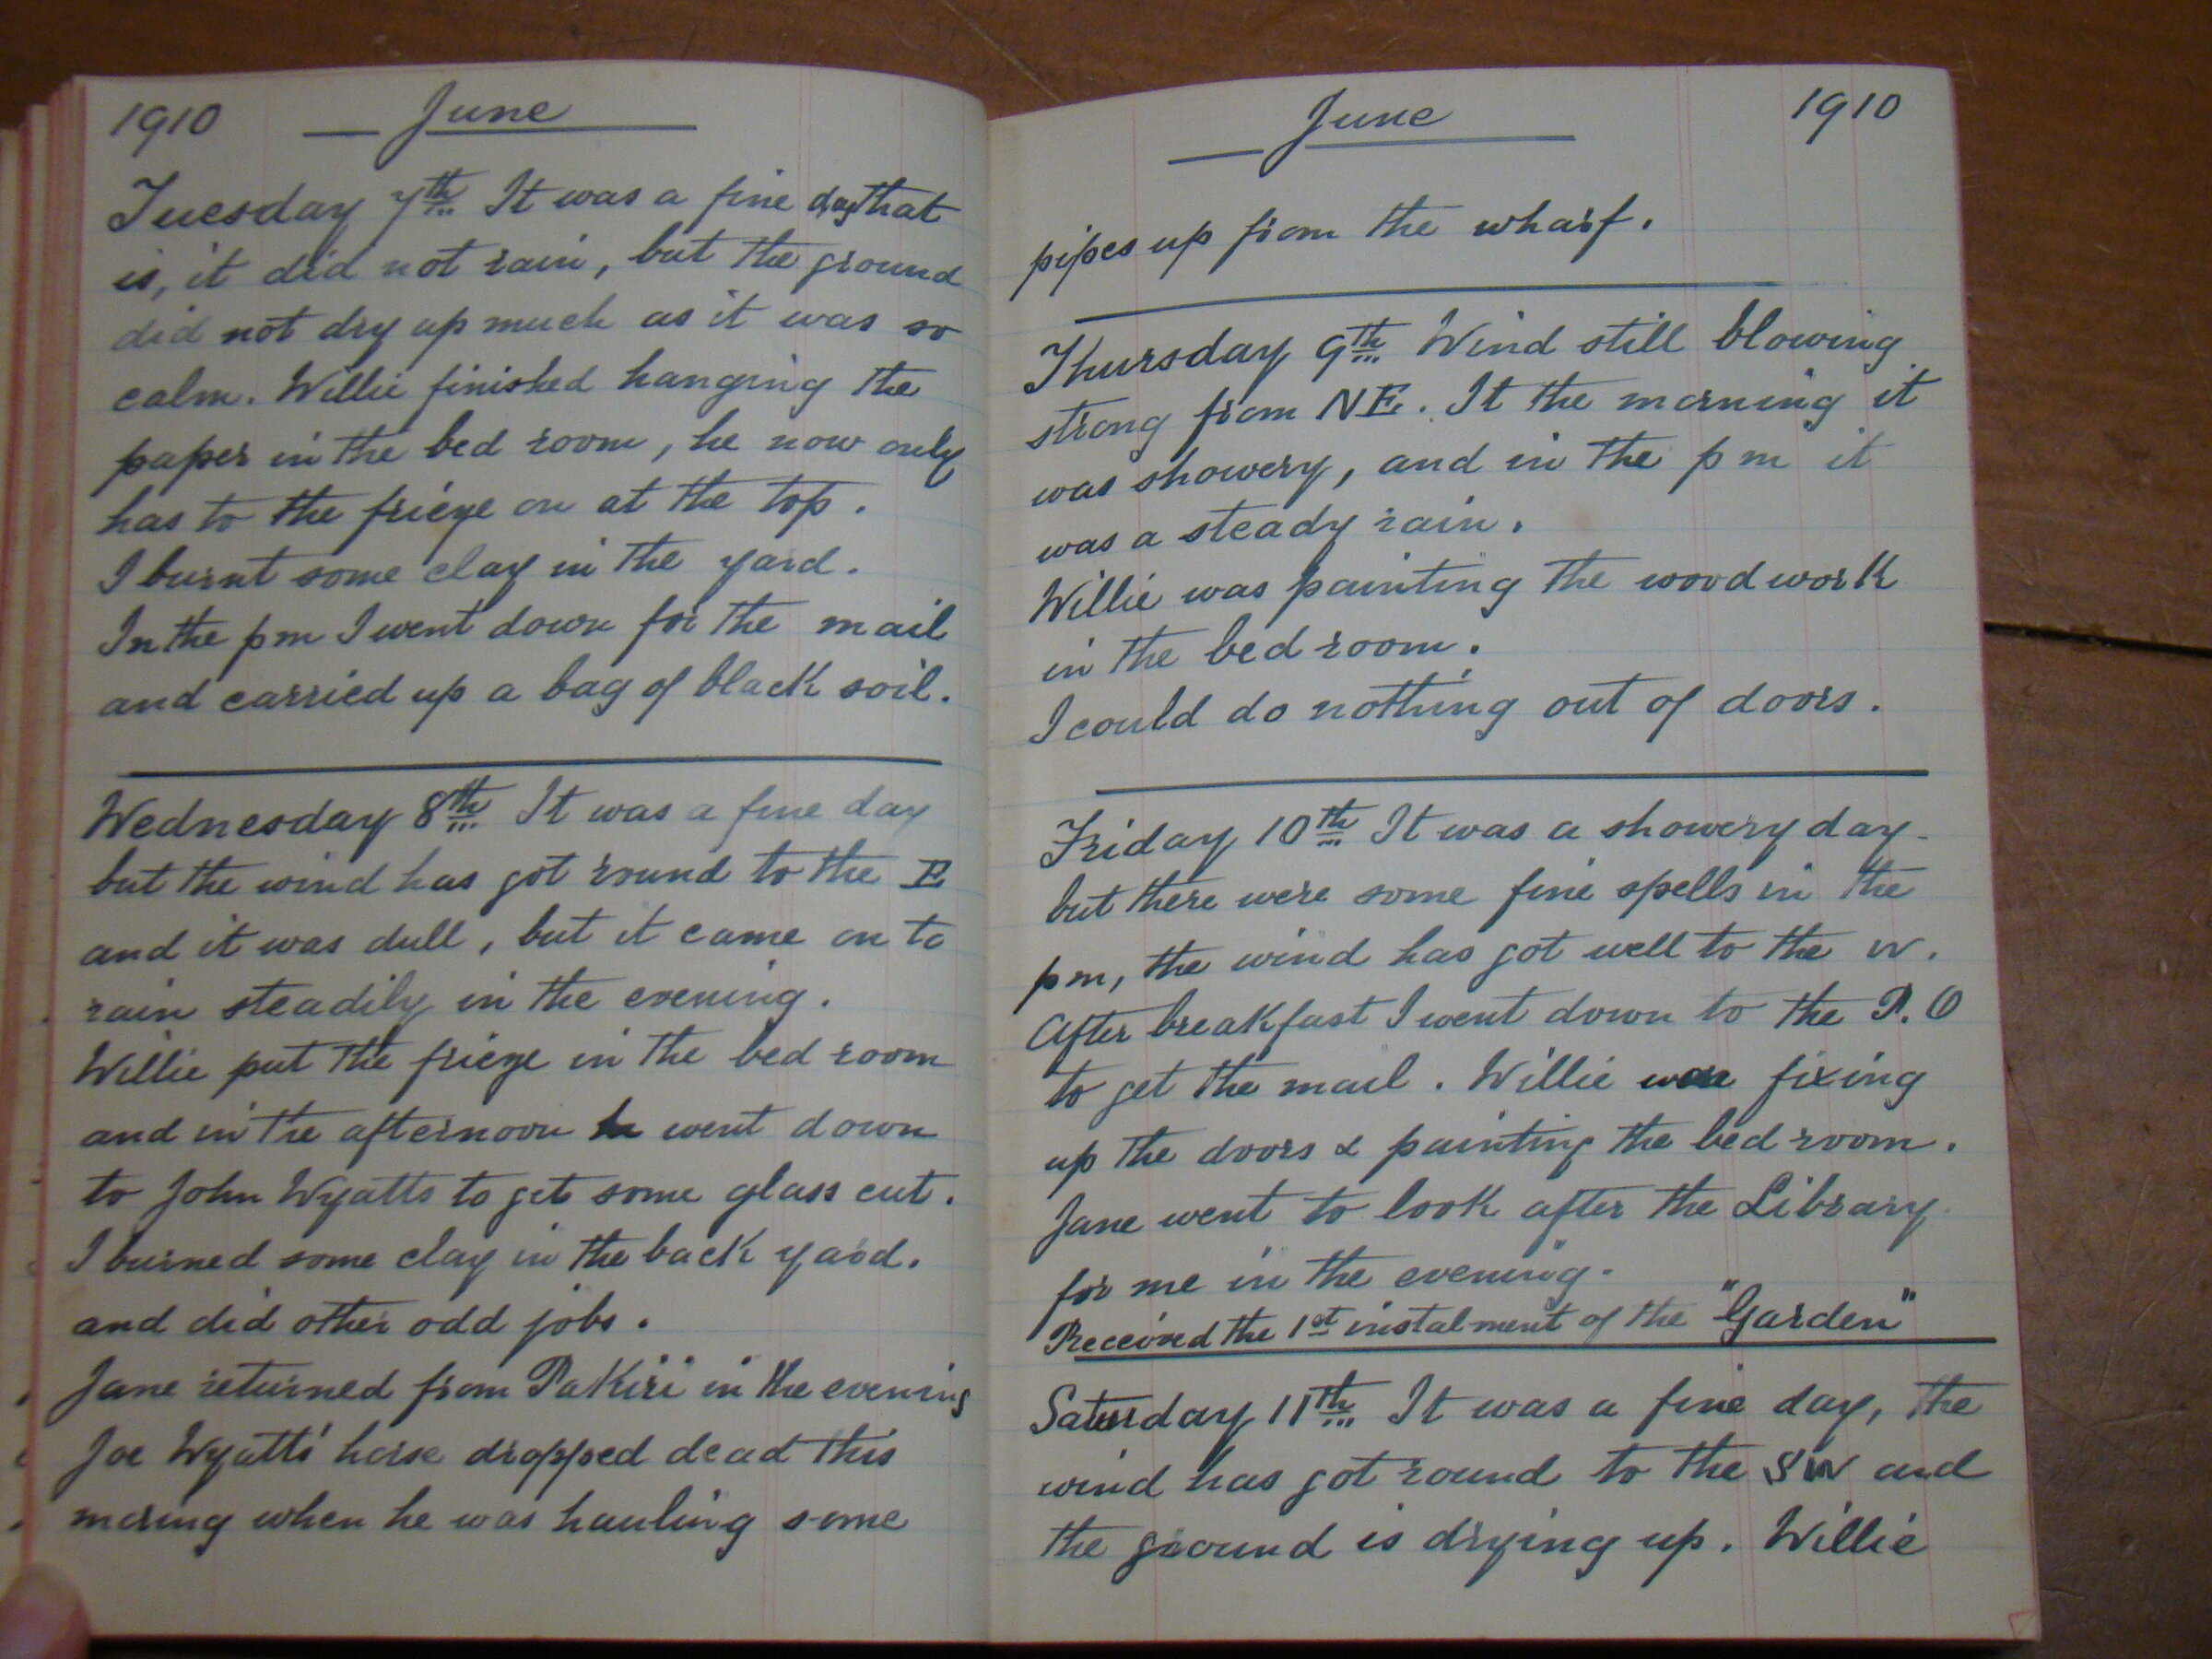 1910 June
Tuesday 7th It was a fine day that
is, it did not rain, but the ground
did not dry up much as it was so
calm. Willie finished hanging the
paper in the bed room, he now only
has to the frieze on at the top.
I burnt some clay in the yard.
In the pm I went down for the mail
and carried up a bag of black soil.
Wednesday 8th It was a fine day
but the wind has got round to the E
and it was dull, but it came on to
rain steadily in the evening.
Willie put the frieze in the bed room
and in the afternoon he went down
to John Wyatts to get some glass cut.
I burned some clay in the back yard.
and did other odd jobs.
Jane returned from Pakiri in the evening
Joe Wyatts' horse dropped dead this
morning when he was hauling some
June 1910
pipes up from the wharf.
Thursday 9th Wind still blowing
strong from NE. It the morning it
was showery, and in the pm it
was a steady rain.
Willie was painting the wood work
in the bed room.
I could do nothing out of doors.
Friday 10th It was a showery day-
but there were some fine spells in the
pm, the wind has got well to the W.
After breakfast I went down to the P.O
to get the mail. Willie was fixing
up the doors & painting the bed room.
Jane went to look after the Library
for me in the evening.
Received the 1st instalment of the "Garden"
Saturday 11th It was a fine day, the
wind has got round to the SW and
the ground is drying up. Willie